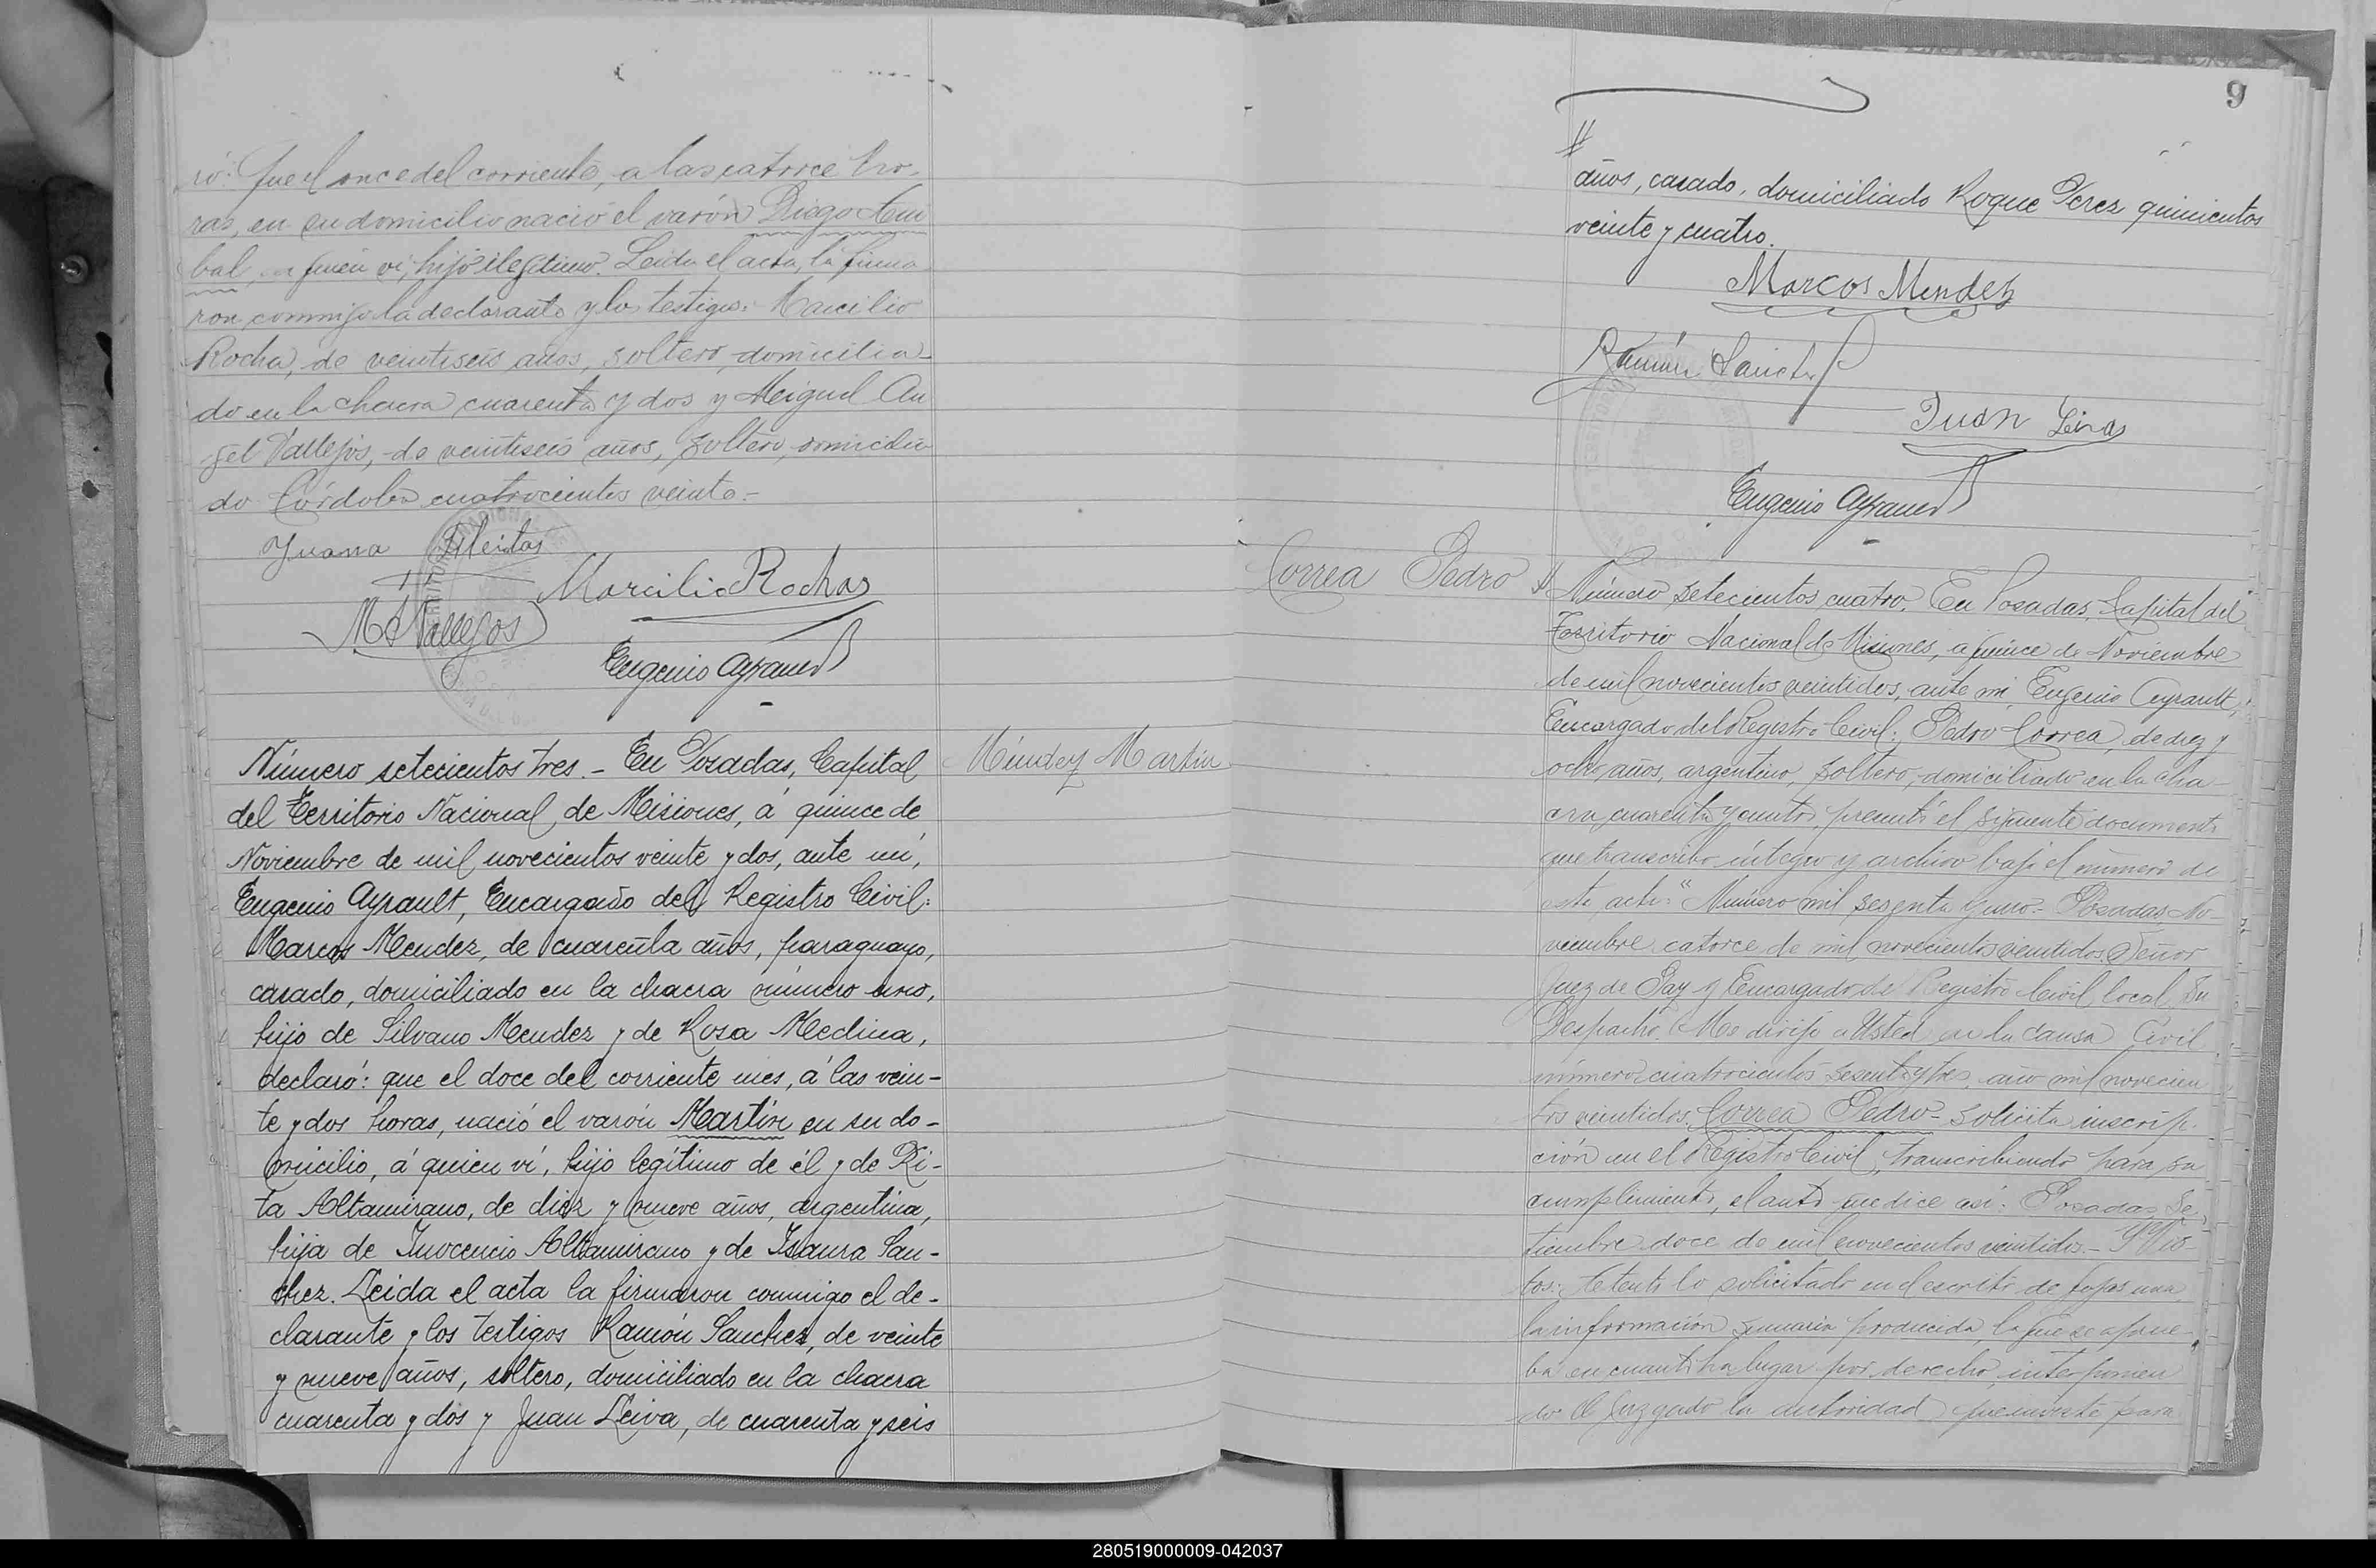 ró: Que el once del corriente, a las catorce ho-
ras, en su domicilio nació el varón Diego Aní
bal, a quien ví, hijo ilegítimo. Leida el acta, la firma
ron conmigo la declarante y los testigos: Marcilio
Rocha, de veintiseis años, soltero, domicilia-
do en la chacra cuarenta y dos y Miguel An
gel Vallejos, de veintiseis años, soltero, domicilia
do Córdoba cuatrocientos veinte.-
Juana
Marcilio Rochas
M A Vallejos
Eugenio Ayrault
Número setecientos tres.- En Posadas, Capital
Méndez Martin
del Territorio Nacional de Misiones, á quince de
Noviembre de mil novecientos veinte y dos, ante mí,
Eugenio Ayrault, Encargado del Registro Civil:
Marcos Mendez, de cuarenta años, paraguayo,
casado, domiciliado en la chacra número uno,
hijo de Silvano Mendez y de Rosa Medina,
declaró: que el doce del corriente mes, á las vein-
te y dos horas, nació el varón Martín en su do-
micilio, á quien ví, hijo legítimo de él y de Ri-
ta Altamirano, de diez y nueve años, argentina,
hija de Inocencio Altamirano y de Isaura San-
chez. Leida el acta la firmaron conmigo el de-
clarante y los testigos Ramón Sanchez, de veinte
y nueve años, soltero, domiciliado en la chacra
cuarenta y dos y Juan Leiva, de cuarenta y seis
9
//
años, casado, domiciliado Roque Perez quinientos
veinte y cuatro.
Marcos Mendez
Ramón Sanchez
Juan Leiva
Eugenio Ayrault
Correa Pedro
Número setecientos cuatro. En Posadas, Capital del
Territorio Nacional de Misiones, a quince de Noviembre
de mil novecientos veintidos, ante mí, Eugenio Ayrault,
Encargado del Registro Civil: Pedro Correa, de diez y
ocho años, argentino, soltero, domiciliado en la cha-
cra cuarenta y cuatro, presentó el siguiente documento
que transcribo íntegro y archivo bajo el número de
este acta: "Número mil sesenta y uno.- Posadas No-
viembre catorce de mil novecientos veintidos. Señor
Juez de Paz y Encargado del Registro Civil local Su
Despacho. Me dirijo a Usted en la causa Civil
número cuatrocientos sesenta y tres, año mil novecien
tos veintidos, Correa Pedro- solicita inscrip-
ción en el Registro Civil, transcribiendo para su
cumplimiento, el auto que dice así: Posadas, Se-
tiembre doce de mil novecientos veintidos.- Y Vis-
tos: Atento lo solicitado en el escrito de fojas una
la información sumaria producida, la que se aprue-
ba en cuanto ha lugar por derecho, interponien
do el Juzgado la autoridad que inviste para
280519000009-042037